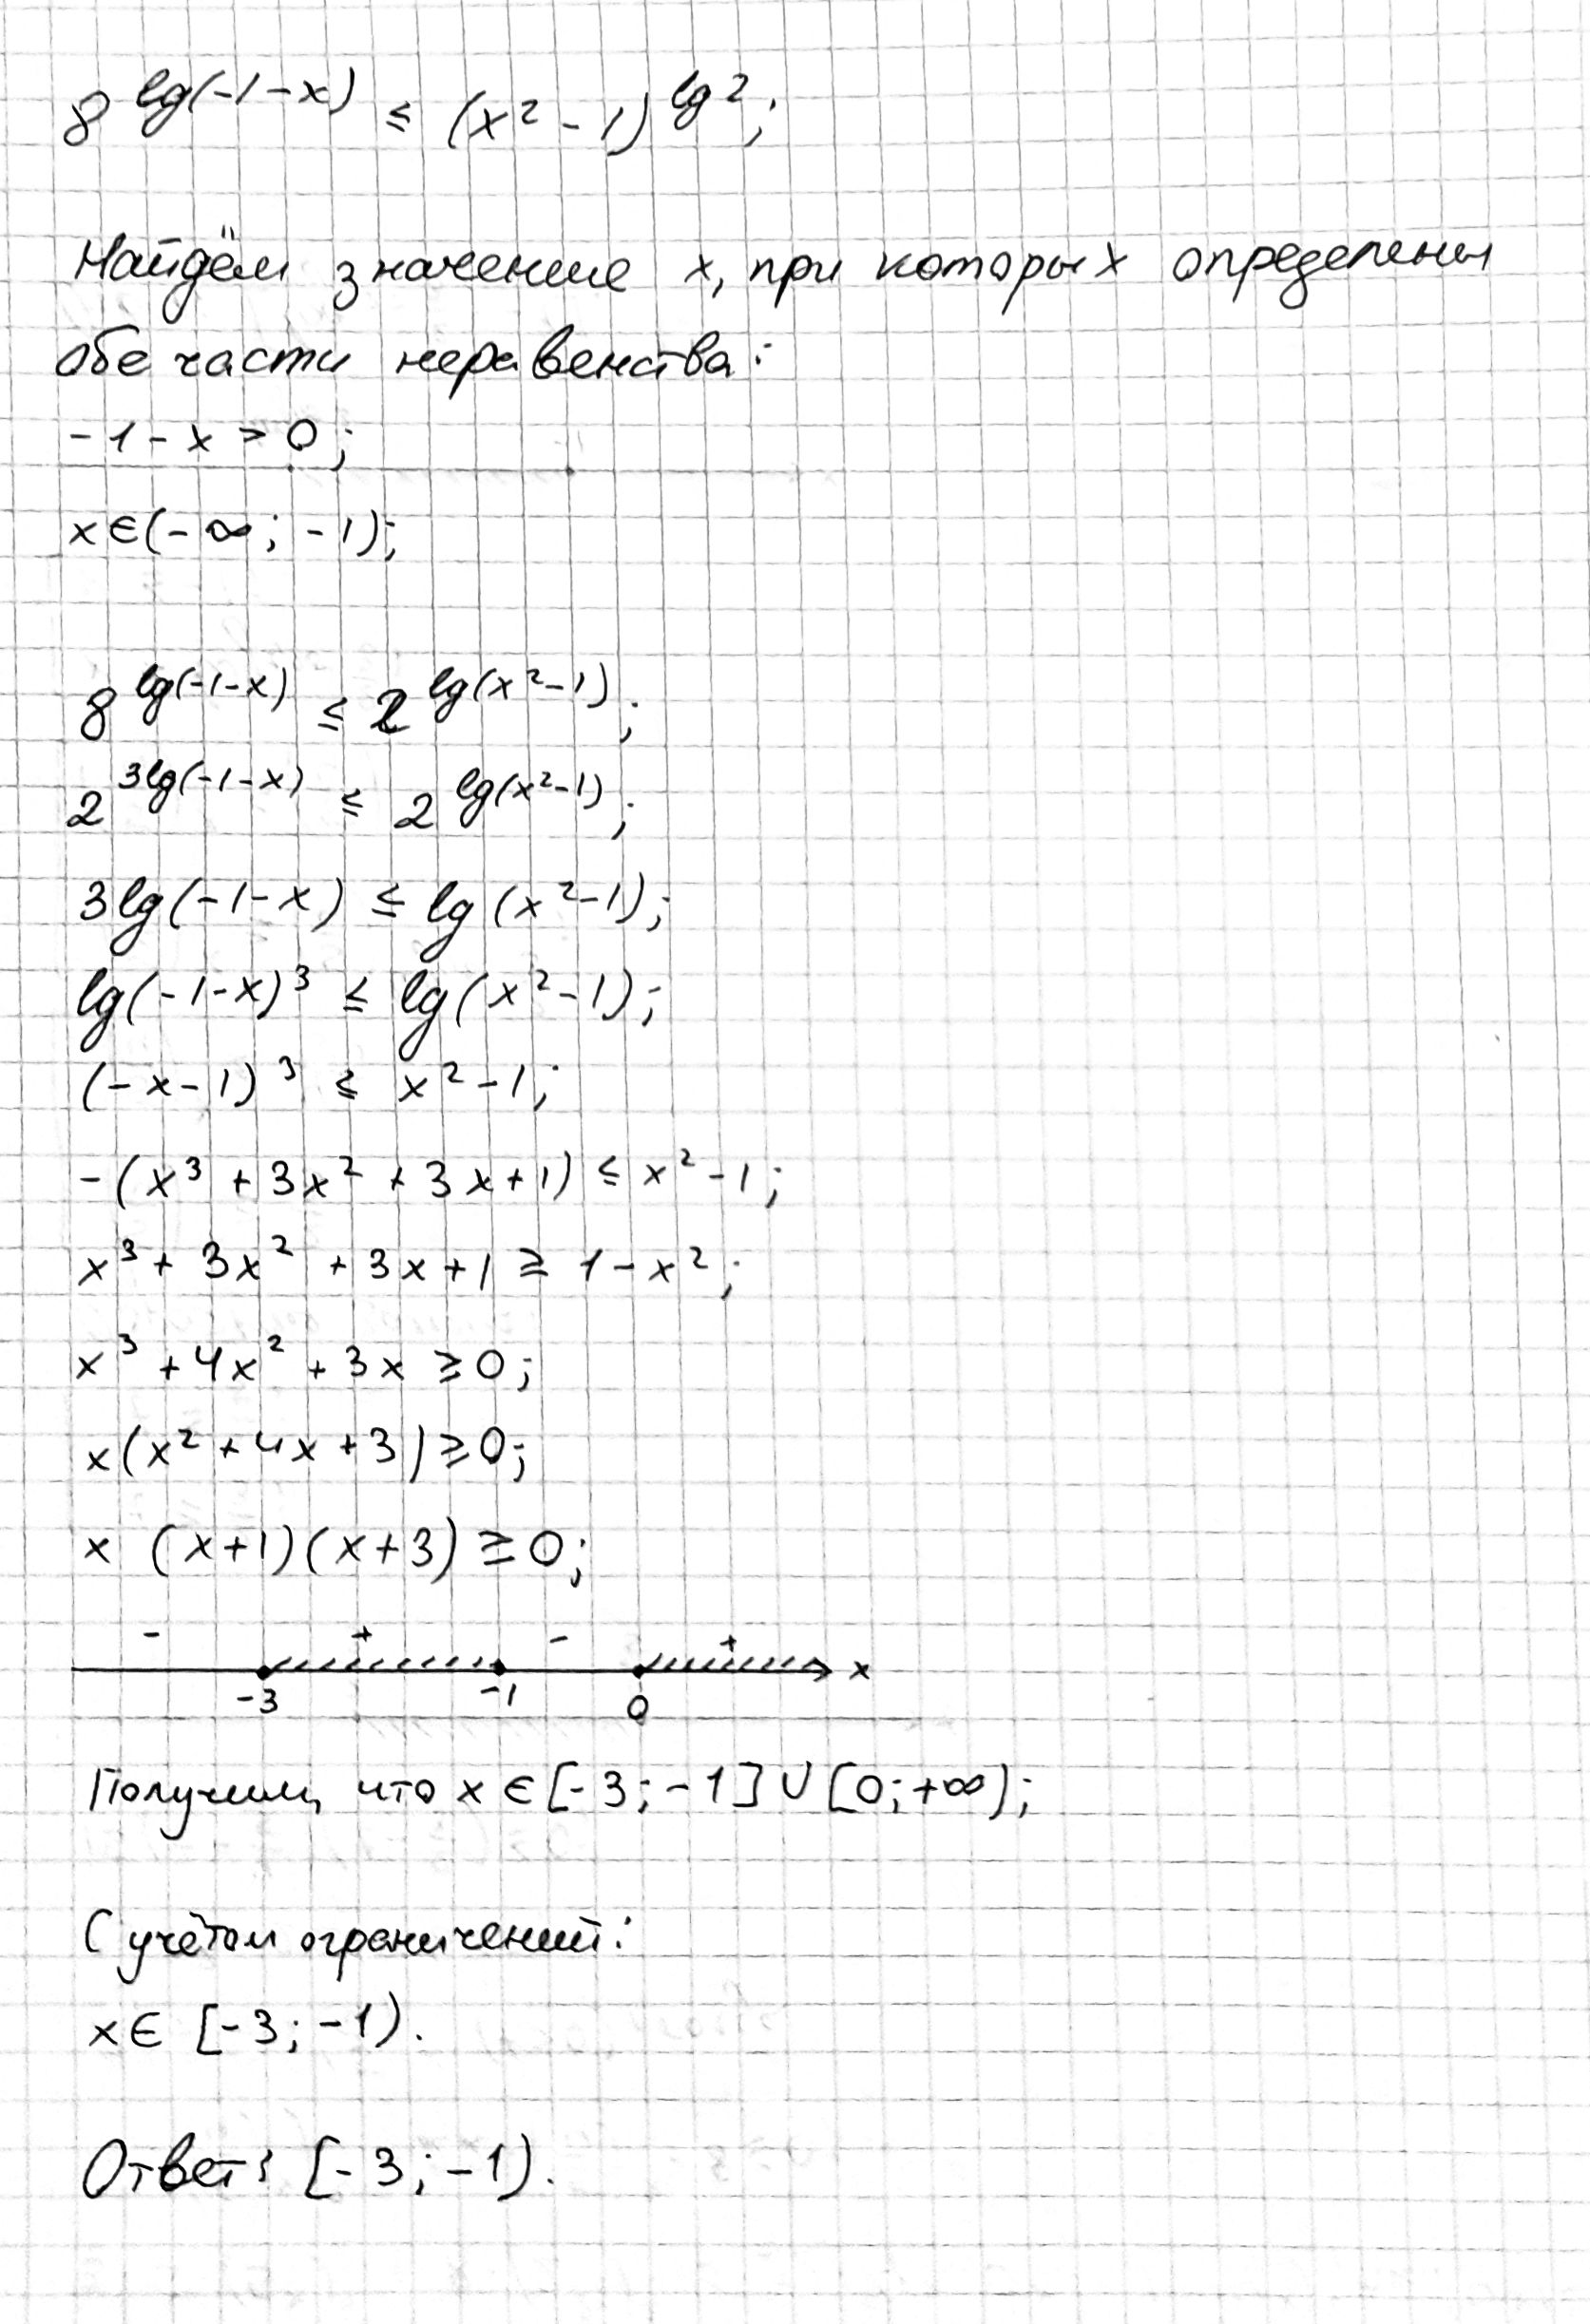 8^{lg(-1-x)} ≤ (x² - 1)^{lg2};
Найдём значение x, при которых определены
обе части неравенства:
-1 - x > 0;
x ∈ (-∞; -1);
8^{lg(-1-x)} ≤ 2^{lg(x²-1)};
2^{3lg(-1-x)} ≤ 2^{lg(x²-1)};
3lg(-1-x) ≤ lg(x²-1);
lg(-1-x)³ ≤ lg(x²-1);
(-x-1)³ ≤ x²-1;
-(x³ + 3x² + 3x+1) ≤ x²-1;
x³ + 3x² + 3x+1 ≥ 1-x²;
x³ + 4x² + 3x ≥ 0;
x(x² + 4x + 3) ≥ 0;
x (x+1)(x+3) ≥ 0;
- + - +
-3 -1 0 x
Получим, что x ∈ [-3; -1] ∪ [0; +∞);
С учётом ограничений:
x ∈ [-3; -1).
Ответ: [-3; -1).